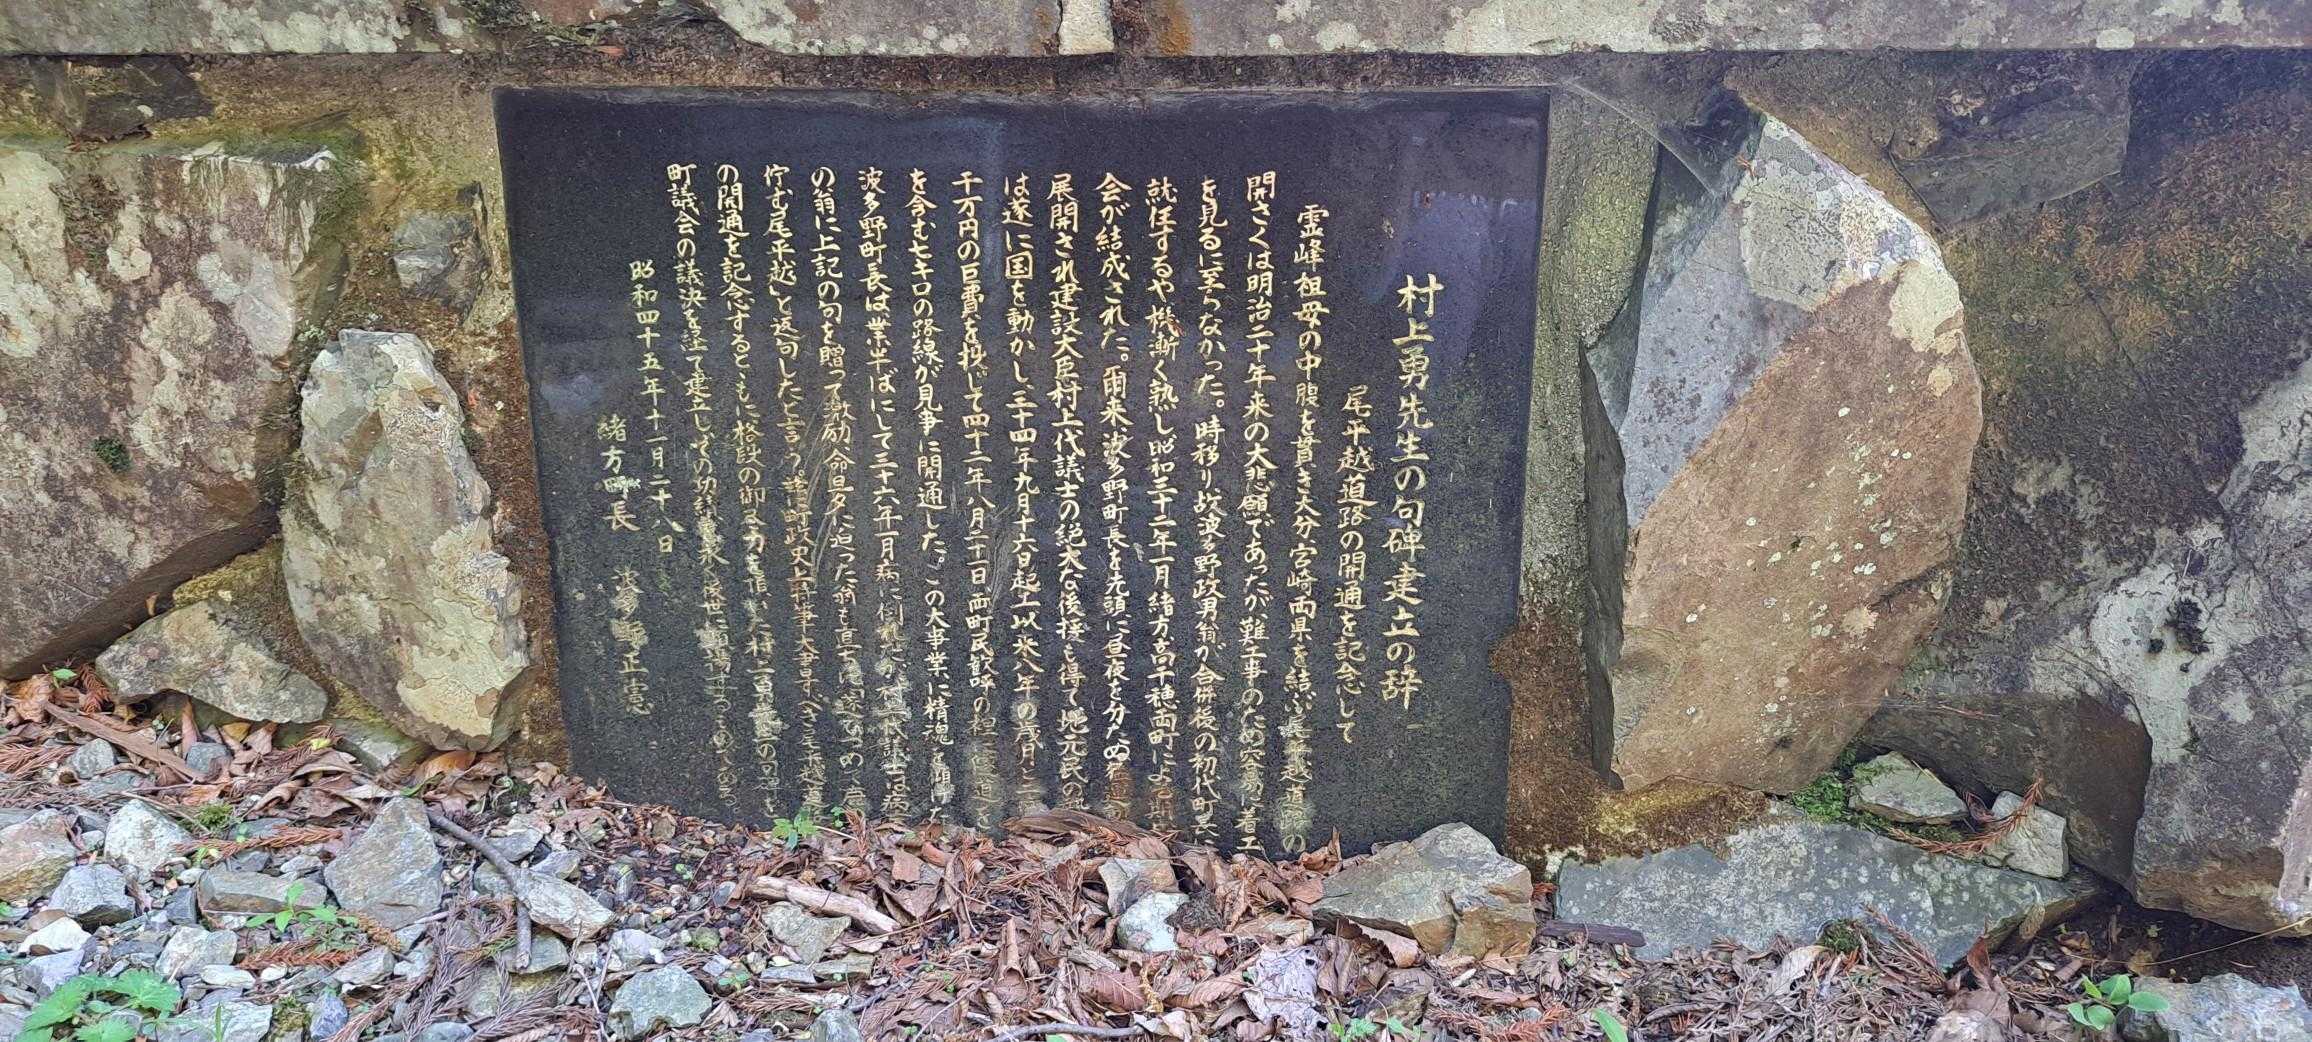 村上勇先生の句碑建立の辞
尾平越道路の開通を記念して
霊峰祖母の中腹を貫き大分宮崎両県を結ぶ尾平越道路の
開さくは明治二十年来の大悲願であったが、難工事のため容易に着工
を見るに至らなかった。時移り故波多野政男翁が合併後の初代町長に
就任するや機漸く熟し昭和三十二年一月緒方高千穂両町による期
会が結成された。爾来波多野町長を先頭に昼夜を分たぬ
展開され建設大臣村上代議士の絶大な後援も得て地元民の熱
は遂に国を動かし、三十四年九月十六日起工以来八年の歳月と二
千万円の巨費を投じて四十二年八月二十一日、両町民歓呼の裡に隧道を
を含む七キロの路線が見事に開通した。この大事業に精魂を傾けた
波多野町長は、業半ばにして三十六年一月病に倒れたが村上代議士は病
の翁に上記の句を贈って激励、命旦夕に迫った翁も直ちに
佇む尾平越」と返句したと言う。町政史上特筆大書すべき尾平越道路
の開通を記念するともに格段の御尽力を頂いた村上勇先生の句碑を
町議会の議決を経て建立しその功績を永く後世に顕揚せるものである
昭和四十五年十一月二十八日
緒方町長 波多野正憲